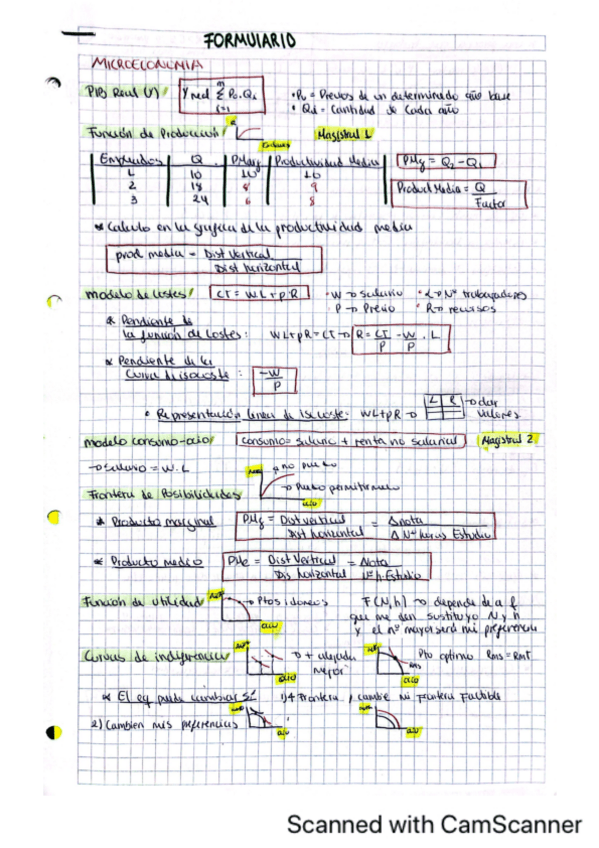 FORMULARIO
MICROECONOMIA
PIB Real (Y) Y real Σ P0 · Qi • P0 = Precios de un determinado año base
i=1 • Qi = Cantidad de cada año
Función de Producción Magistral 1
Empleados Q PMg Productividad Media PMg = Q2 - Q1
1 10 10 10
2 18 8 9 Product Media = Q / Factor
3 24 6 8
* Calculo en la grafica de la productividad media
prod media = Dist Vertical / Dist horizontal
modelo de costes CT = W·L + p·R · W → salario · L → Nº trabajadores
· P → Precio · R → recursos
* Pendiente de
la función de costes: WL + pR = CT → R = CT/P - W/P · L
* Pendiente de la
Curva de isocoste: -W/P
• Representación linea de Isocoste: WL + pR → L R → dar
valores
modelo consumo-ocio consumo = salario + renta no salarial Magistral 2
→ salario = W·L
→ no puedo
→ Puedo permitirmelo
Frontera de Posibilidades ocio
* Producto marginal PMg = Dist vertical / Dist horizontal = Δ nota / Δ Nº horas Estudio
* Producto medio PMe = Dist Vertical / Dis horizontal = Nota / Nº h. Estudio
Función de utilidad → Ptos idoneos F(N,h) → depende de a f
ocio que me den sustituyo N y h
y el nº mayor será mi preferencia
Curvas de indiferencia → + alejada mejor Pto optimo RMS = RMT
ocio RMS ocio
* El eq puede cambiar si 1) + Frontera, cambie mi Frontera Factible
2) Cambien mis preferencias
Scanned with CamScanner